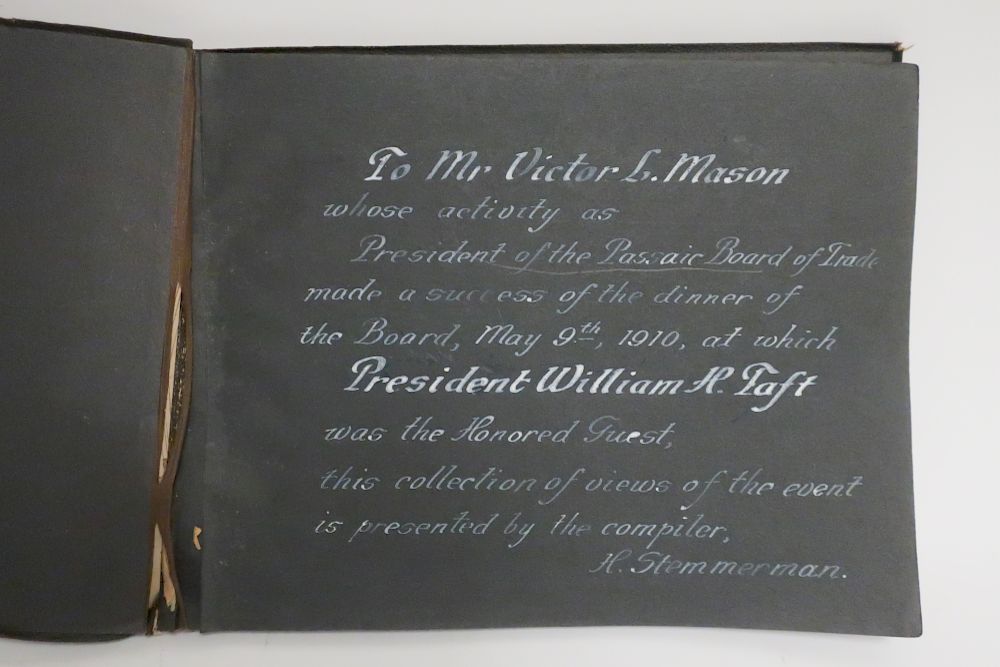 To Mr Victor L. Mason
whose activity as
President of the Passaic Board of Trade
made a success of the dinner of
the Board, May 9th, 1910, at which
President William H. Taft
was the Honored Guest,
this collection of views of the event
is presented by the compiler,
H. Stemmerman.